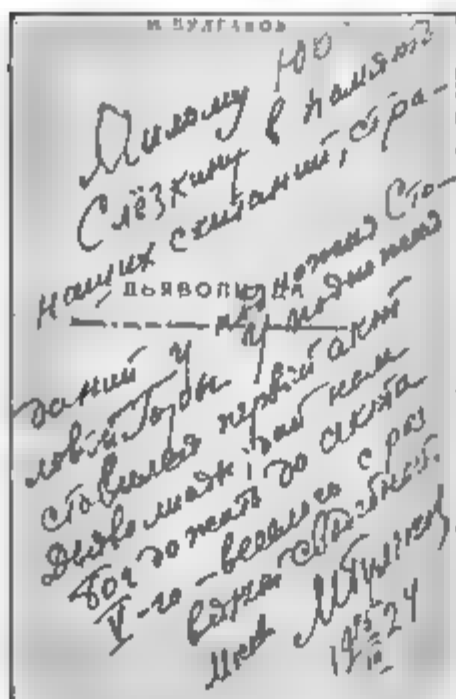 М. БУЛГАКОВ
Милому Юр
Слёзкину в память
наших скитаний, стра-
ДЬЯВОЛИАДА
даний у подножия Сто-
ловой Горы. У подножия
ставился первый акт
дьяволиады дай нам
Бог дожить до акта
V-го – веселого с раз
вязкой свадебной.
М. Булгаков
1924